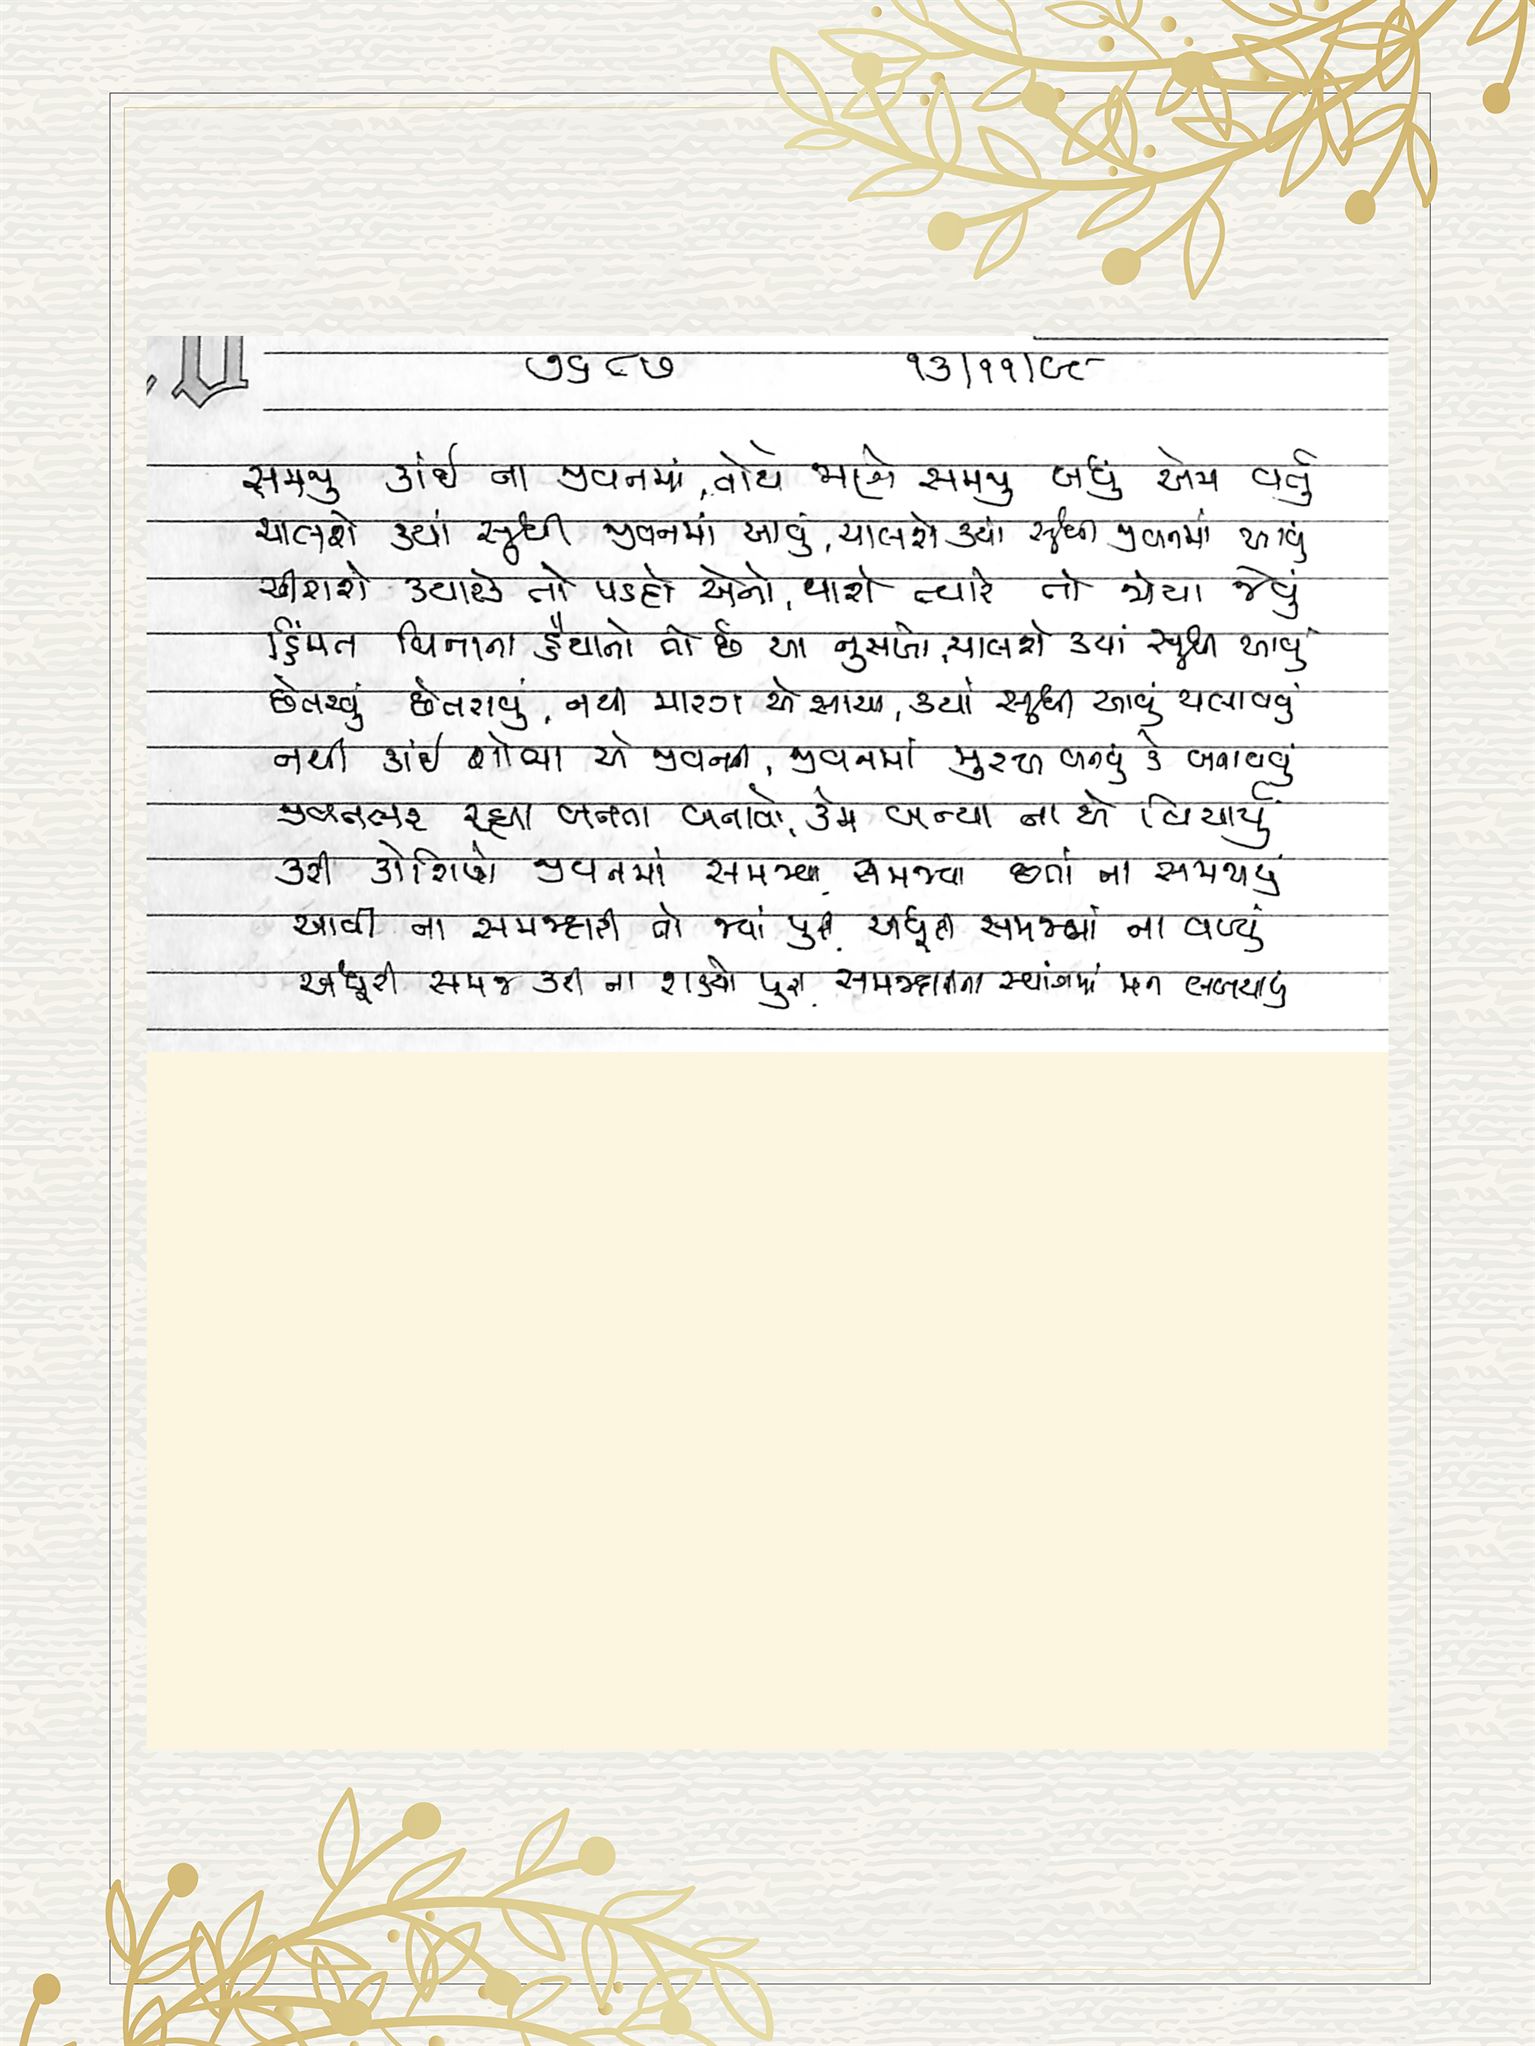 ૭૬૮૭ ૧૩/૧૧/૯૮
સમજ્યુ કાંઈ ના જીવનમાં, તોયે જાણે સમજ્યુ બધું એમ વર્તુ
ચાલશે ક્યાં સુધી જીવનમાં આવું, ચાલશે ક્યાં સુધી જીવનમાં આવું
ચીરાશે ક્યારેક તો પડદો એનો, થાશે ત્યારે તો જોયા જેવું
હિંમત વિનાના હૈયાનો તો છે આ નુસખો, ચાલશે ક્યાં સુધી આવું
છેતરવું છેતરાવું, નથી મારગ એ સાચા, ક્યાં સુધી આવું ચલાવવું
નથી કાંઈ શોભા એ જીવનની, જીવનમાં મુરખ બનવું કે બનાવવું
જીવનભર રહ્યા બનતા બનાવો, કેમ બન્યા ના એ વિચાર્યું
કરી કોશિશો જીવનમાં સમજવા, સમજવા છતાં ના સમજાયું
આવી ના સમજદારી તો જ્યાં પુરી, અધૂરી સમજમાં ના વળ્યું
અધૂરી સમજ કરી ના શક્યો પુરી, સમજદારીના સ્વાંગમાં મન લલચાયું